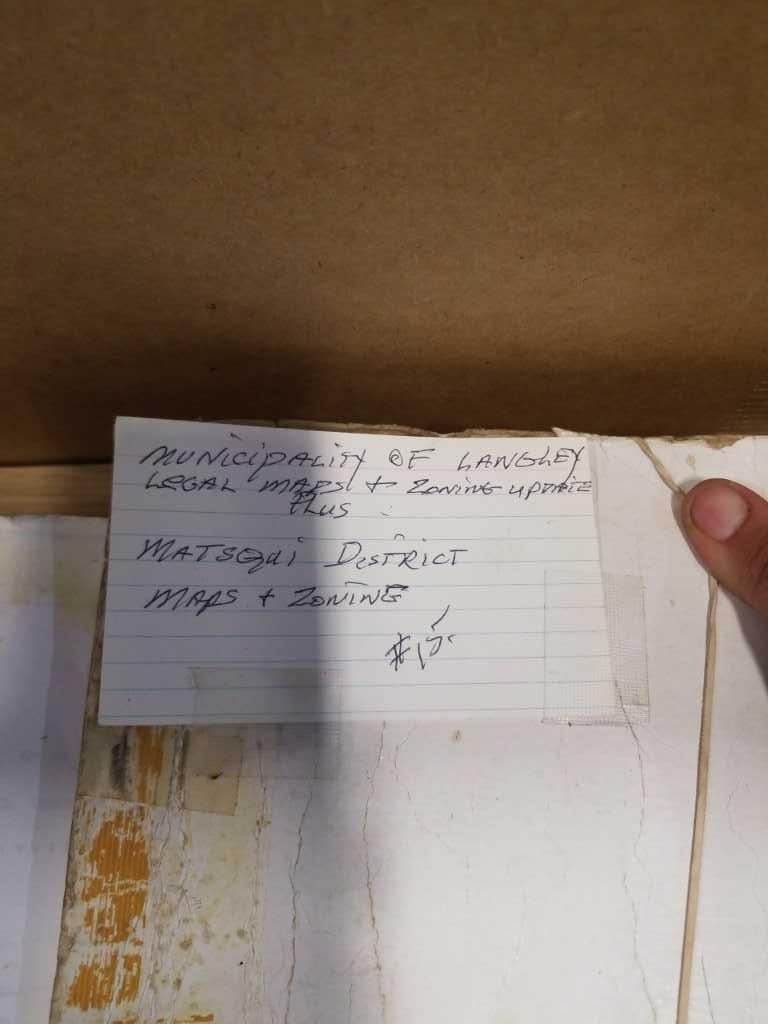 MUNICIPALITY OF LANGLEY
LEGAL MAPS + ZONING UPDATE
PLUS
MATSQUI DISTRICT
MAPS + ZONING
#15